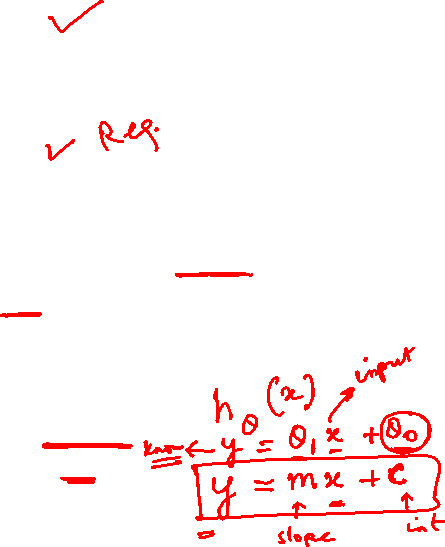 ✓
✓ Reg.
input
h_θ(x)
know ← y = θ₁x + θ₀
y = mx + c
slope int